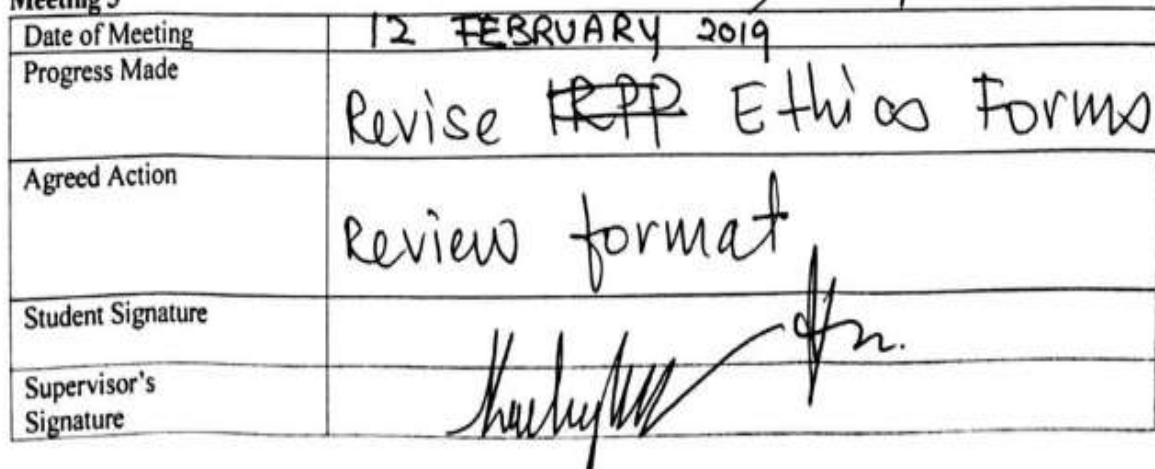 Meeting 3
Date of Meeting 12 FEBRUARY 2019
Progress Made
Revise Ethics Forms
Agreed Action
Review format
Student Signature
Supervisor's
Signature